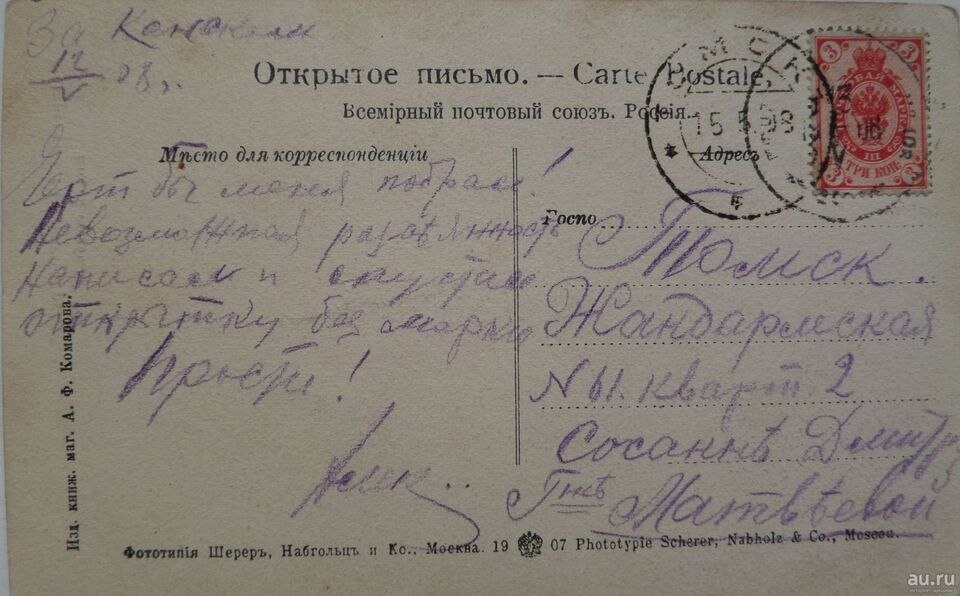 За Канском
12/V 08 г.
Открытое письмо. — Carte Postale.
Всемірный почтовый союзъ. Россія.
Мѣсто для корреспонденціи
Адресъ
Чорт бы меня побрал!
Невозможная разсѣянность
Написал и опустил
открытку без марки
Прости!
Госпо
Томск.
Жандармская
N 61. кварт 2
Сосаннѣ Дмитр
Гжѣ Матвѣевой
ОМСКЪ
15 5 08
3 3
МАРКА
ТРИ КОП.
3 3
Изд. книж. маг. А. Ф. Комарова.
Фототипія Шереръ, Набгольцъ и Ко., Москва. 19 07 Phototypie Scherer, Nabholz & Co., Moscou.
au.ru